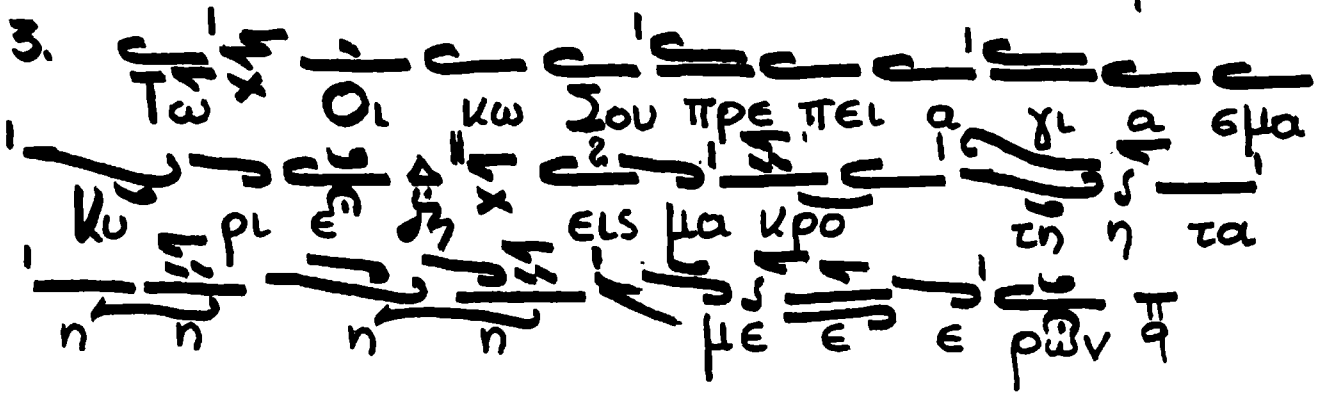 3. Τω Οι κω Σου πρε πει α γι α σμα
Κυ ρι ε εις μα κρο τη η τα
η η η η με ε ε ρων